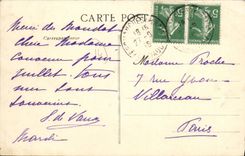 CARTE POSTALE
Merci du Mandat
Chère Madame
convenu pour
juillet. Tous
mes bons
souvenirs
S de Vaux
Mardi
Madame Roche
7 rue Yvon
Villarceau
Paris